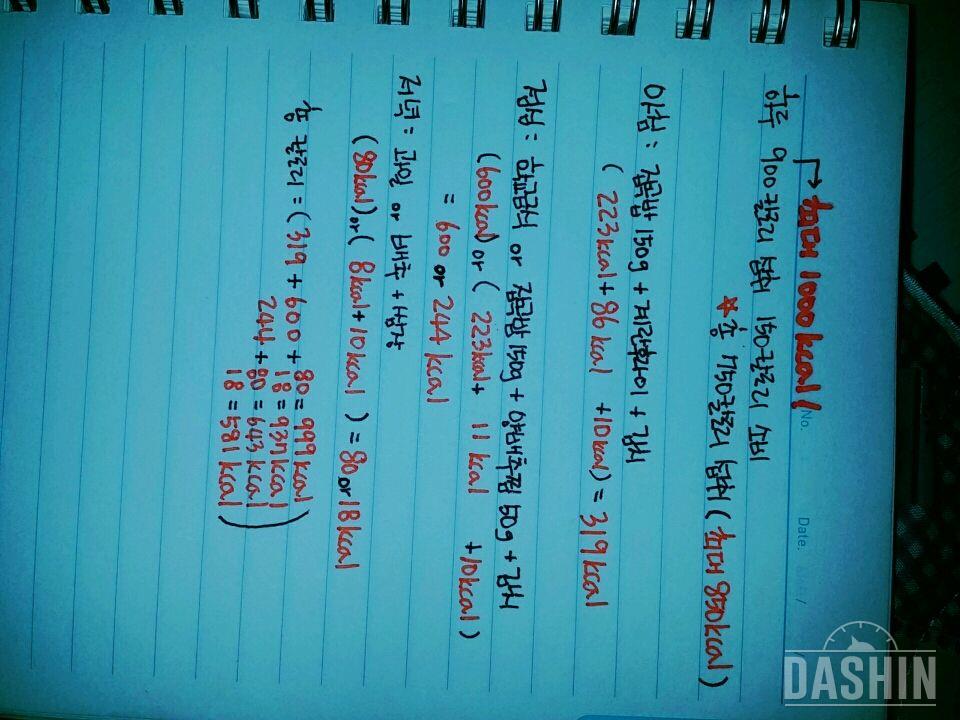 No.
Date.
→ 최대 1000 kcal!
하루 900칼로리 섭취 150칼로리 소비
*총 750칼로리 섭취 (최대 850kcal)
아침 : 검은밥 150g + 계란후라이 + 김치
( 223kcal + 86 kcal + 10kcal) = 319kcal
점심 : 학교급식 or 검은밥 150g + 양배추찜 50g + 김치
(600kcal) or ( 223kcal + 11 kcal + 10kcal )
= 600 or 244 kcal
저녁 : 과일 or 배추 + 쌈장
(80kcal) or ( 8kcal + 10kcal ) = 80 or 18kcal
총 칼로리 = ( 319 + 600 + 80 = 999kcal
18 = 937kcal
244 + 80 = 643 kcal
18 = 581 kcal )
DASHIN